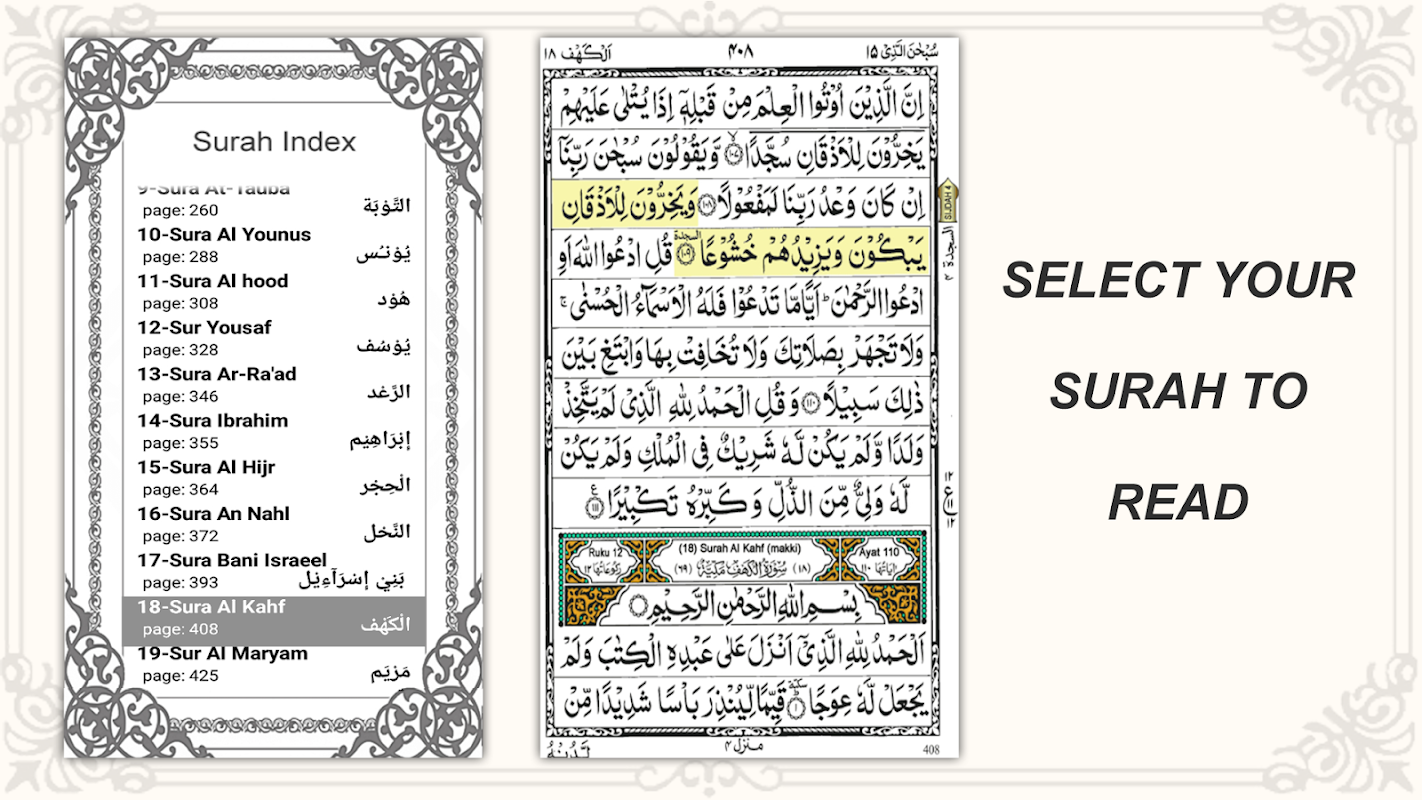 Surah Index
9-Sura At-Tauba
page: 260
التَّوْبَة
10-Sura Al Younus
page: 288
يُوْنُس
11-Sura Al hood
page: 308
هُوْد
12-Sur Yousaf
page: 328
يُوْسُف
13-Sura Ar-Ra'ad
page: 346
الرَّعْد
14-Sura Ibrahim
page: 355
إبْرَاهِيْم
15-Sura Al Hijr
page: 364
الْحِجْر
16-Sura An Nahl
page: 372
النَّحْل
17-Sura Bani Israeel
page: 393
بَنِيْ إِسْرَآءِيْل
18-Sura Al Kahf
page: 408
الْكَهْف
19-Sur Al Maryam
page: 425
مَرْيَم
سُبْحٰنَ الَّذِیْۤ ۱۵
۴۰۸
اَلْكَهْف ۱۸
اِنَّ الَّذِیْنَ اُوْتُوا الْعِلْمَ مِنْ قَبْلِهٖۤ اِذَا یُتْلٰى عَلَیْهِمْ
یَخِرُّوْنَ لِلْاَذْقَانِ سُجَّدًا ۱۰۷ وَّیَقُوْلُوْنَ سُبْحٰنَ رَبِّنَاۤ
اِنْ كَانَ وَعْدُ رَبِّنَا لَمَفْعُوْلًا ۱۰۸ وَیَخِرُّوْنَ لِلْاَذْقَانِ
یَبْكُوْنَ وَیَزِیْدُهُمْ خُشُوْعًا ۱۰۹ السجدة قُلِ ادْعُوا اللّٰهَ اَوِ
ادْعُوا الرَّحْمٰنَ ؕ اَیًّا مَّا تَدْعُوْا فَلَهُ الْاَسْمَآءُ الْحُسْنٰى ۚ
وَلَا تَجْهَرْ بِصَلَاتِكَ وَلَا تُخَافِتْ بِهَا وَابْتَغِ بَیْنَ
ذٰلِكَ سَبِیْلًا ۱۱۰ وَقُلِ الْحَمْدُ لِلّٰهِ الَّذِیْ لَمْ یَتَّخِذْ
وَلَدًا وَّلَمْ یَكُنْ لَّهٗ شَرِیْكٌ فِی الْمُلْكِ وَلَمْ یَكُنْ
لَّهٗ وَلِیٌّ مِّنَ الذُّلِّ وَكَبِّرْهُ تَكْبِیْرًا ۱۱۱ ع
SIJDAH 4
السجدة ۴
۱۲
ع
۱۱
۱۲
Ruku 12
(18) Surah Al Kahf (makki)
Ayat 110
اٰیَاتُهَا ۱۱۰
(۱۸) سُوْرَةُ الْكَهْفِ مَكِّیَّةٌ (۶۹)
رُكُوْعَاتُهَا ۱۲
بِسْمِ اللّٰهِ الرَّحْمٰنِ الرَّحِیْمِ
اَلْحَمْدُ لِلّٰهِ الَّذِیْۤ اَنْزَلَ عَلٰى عَبْدِهِ الْكِتٰبَ وَلَمْ
یَجْعَلْ لَّهٗ عِوَجًا ۱ سكتة قَیِّمًا لِّیُنْذِرَ بَاْسًا شَدِیْدًا مِّنْ
منزل ۴
لَّدُنْهُ
408
SELECT YOUR
SURAH TO
READ